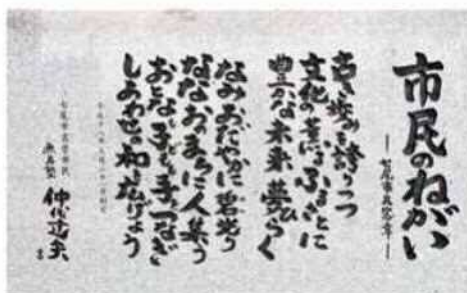 市民のねがい
―七尾市民憲章―
古き歩みを誇りつつ
文化の薫るふるさとに
豊かな未来夢ひらく
なみおだやかに碧光り
ななおのまちに人集う
おとなも子どもも手をつなぎ
しあわせの和を広げよう
七尾市名誉市民
無名塾 仲代達矢
書